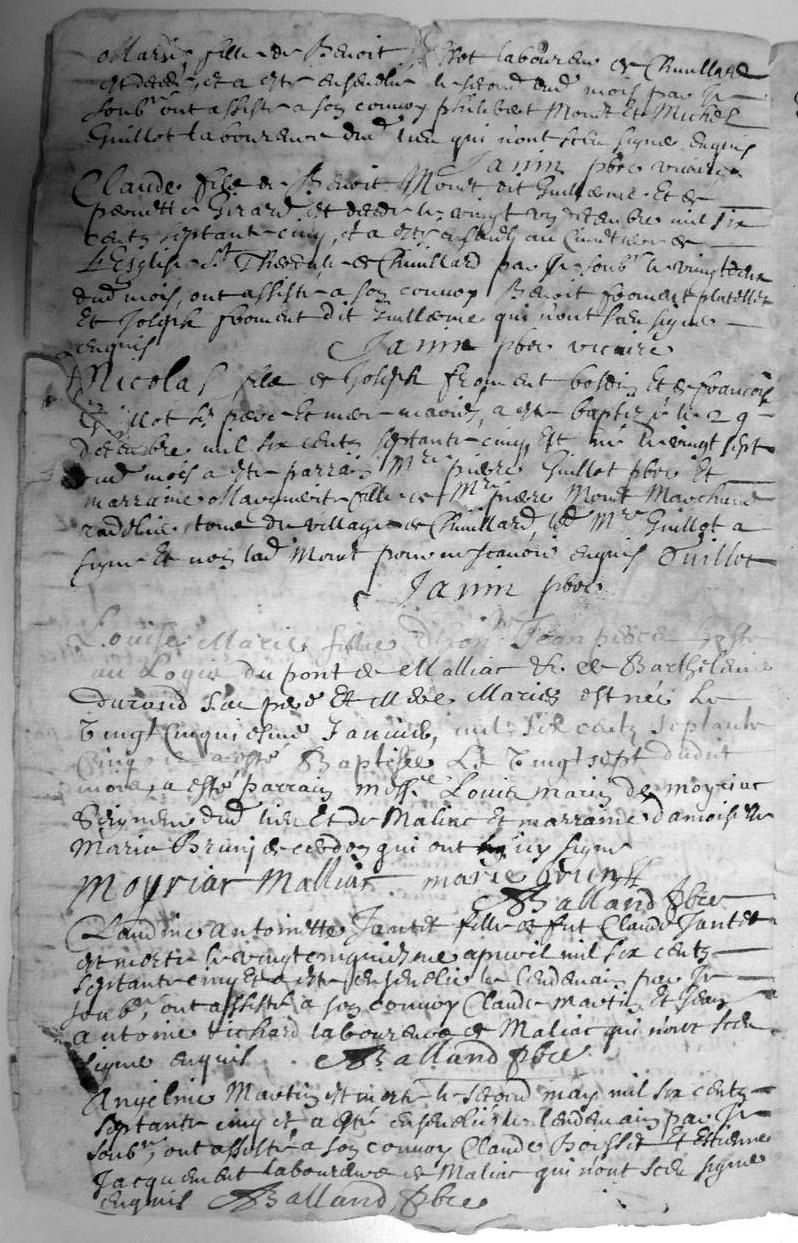 Marie fille de Benoit laboureur de Chuillard
est decede et a este ensevelie le second dud mois par je
soubz ont assiste a son convoy philibert Monet et Michel
Guillot laboureurs dud lieu qui nont sceu signe enquis
Janin pbre vicaire
Claude fille de Benoit Monet dit Guilleme et de
pernette Girard est decede le vingt decembre mil six
cents septante cinq, et a este ensevely au Cimetiere de
L'Esglise St de Chuillard par je soubz le vingt
dud mois, ont assiste a son convoy Benoit froment platellet
Et Joseph froment dit Guilleme qui nont sceu signe
enquis Janin pbre vicaire
Nicolas filz de Joseph froment Et de francoise
Guillot ses pere Et mere maries, a este baptize le 29
decembre mil six cents septante cinq, Est né le vingt sept
dud mois a este parrain Mre pierre Guillot pbre Et
marraine Marguerite fille de Mre pierre Monet Marchand
du village de Chuillard, led Mre Guillot a
signe Et non lad Monet pour ne scavoir enquis Guillot
Janin pbre
Louise Marie fille Jean pierre
au Logis du pont de Malliac & de Barthelemie
Durand Ses pere Et Mere Maries est née Le
Vingt Cinquiesme Janvier, mil Six cents Septante
Cinq a esté Baptisée Le Vingt sept dudit
mois, a esté parrain messre Louis marie de moyriac
Seigneur dud lieu Et de Maliac Et marraine damoiselle
Marie Brunj de cerdon qui ont icy signe
Moyriac Malliac marie brunj
Balland pbre
Claudine Antoinette Jantet fille de fut Claude Jantet
est morte le vingt cinquiesme apvril mil six cents
septante cinq et a este ensevelie le lendemain par je
soubz, ont assiste a son convoy Claude martin Et Jean
antoine Richard laboureurs de Maliac qui nont sceu
signe enquis. Balland pbre
Angeline Martin est morte le second may mil six cents
septante cinq et a esté ensevelie le lendemain par je
soubz, ont assisté a son convoy Claude Et Estienne
Jacquemet laboureurs de Maliac qui nont sceu signe
enquis Balland pbre